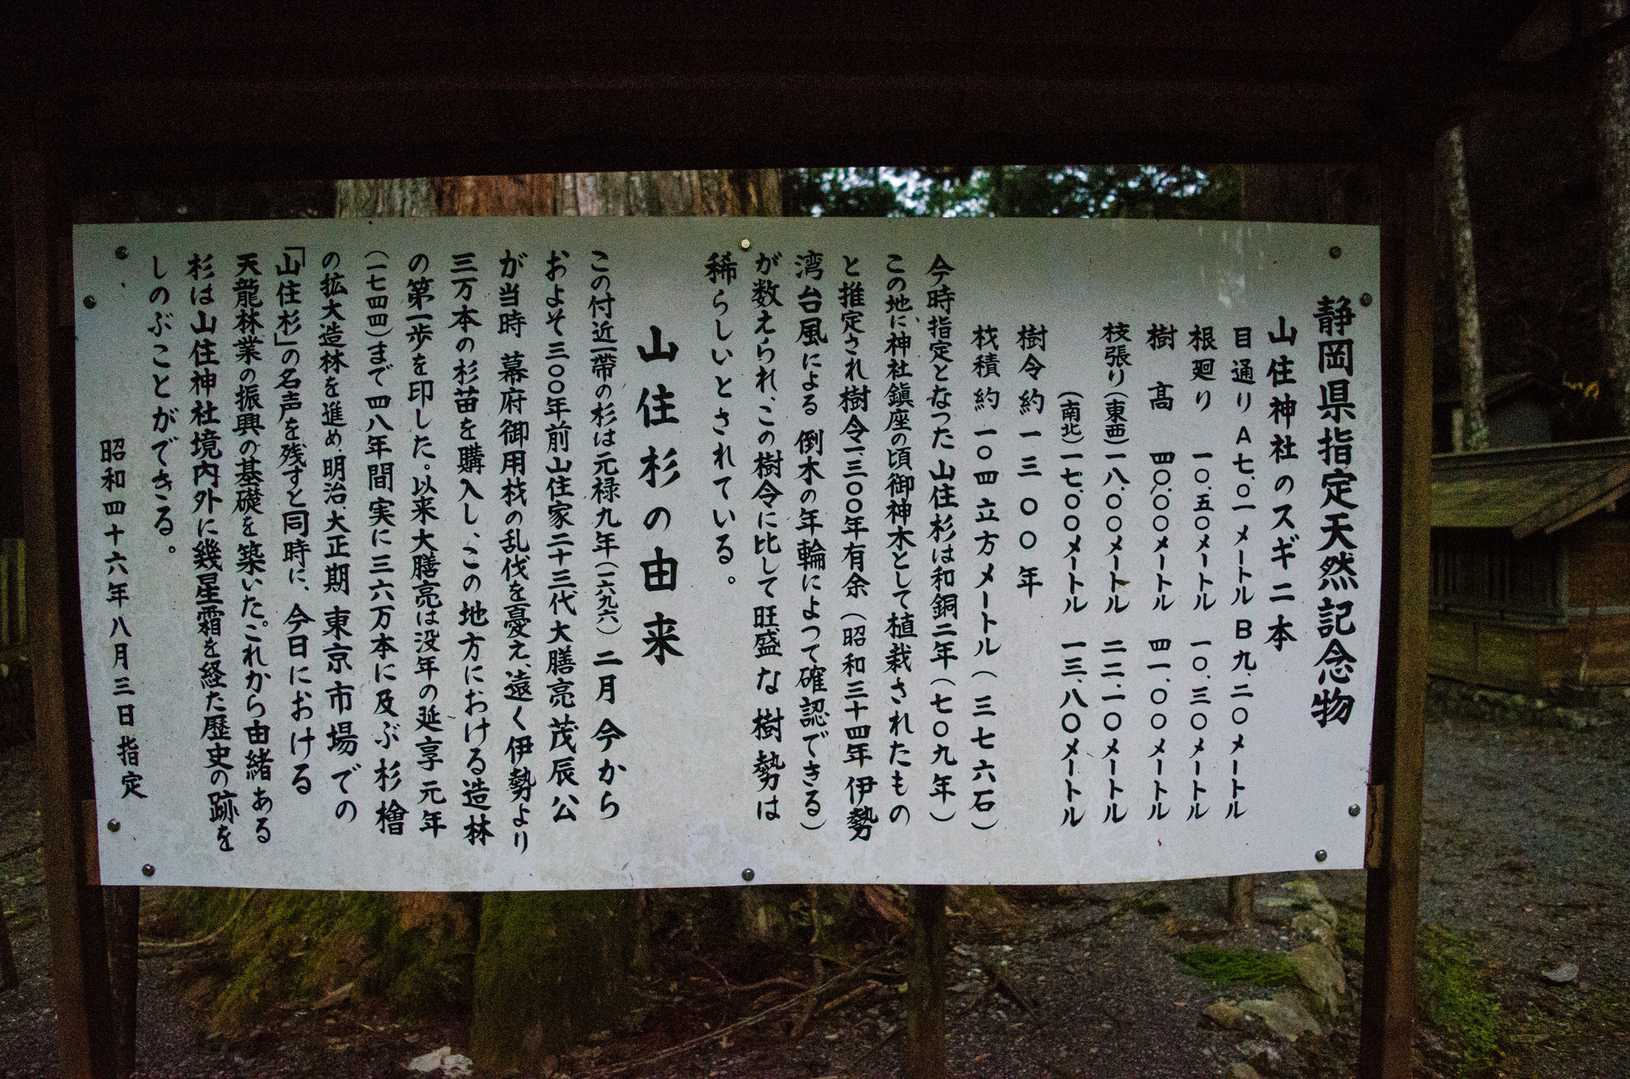 静岡県指定天然記念物
山住神社のスギ二本
目通り A七、〇一メートル B九、二〇メートル
根廻り 一〇、五〇メートル 一〇、三〇メートル
樹高 四〇、〇〇メートル 四一、〇〇メートル
枝張り(東西)一八、〇〇メートル 二二、一〇メートル
(南北)一七、〇〇メートル 一三、八〇メートル
樹令約一三〇〇年
材積約一〇四立方メートル(三七六石)
今時指定となつた山住杉は和銅二年(七〇九年)
この地に神社鎮座の頃御神木として植栽されたもの
と推定され樹令一、三〇〇年有余(昭和三十四年伊勢
湾台風による倒木の年輪によつて確認できる)
が数えられ、この樹令に比して旺盛な樹勢は
稀らしいとされている。
山住杉の由来
この付近一帯の杉は元禄九年(一六九六)二月今から
およそ三〇〇年前山住家二十三代大膳亮茂辰公
が当時 幕府御用材の乱伐を憂え、遠く伊勢より
三万本の杉苗を購入し、この地方における造林
の第一歩を印した。以来大膳亮は没年の延享元年
(一七四四)まで四八年間実に三六万本に及ぶ杉檜
の拡大造林を進め、明治、大正期 東京市場での
「山住杉」の名声を残すと同時に、今日における
天龍林業の振興の基礎を築いた。これから由緒ある
杉は山住神社境内外に幾星霜を経た歴史の跡を
しのぶことができる。
昭和四十六年八月三日指定